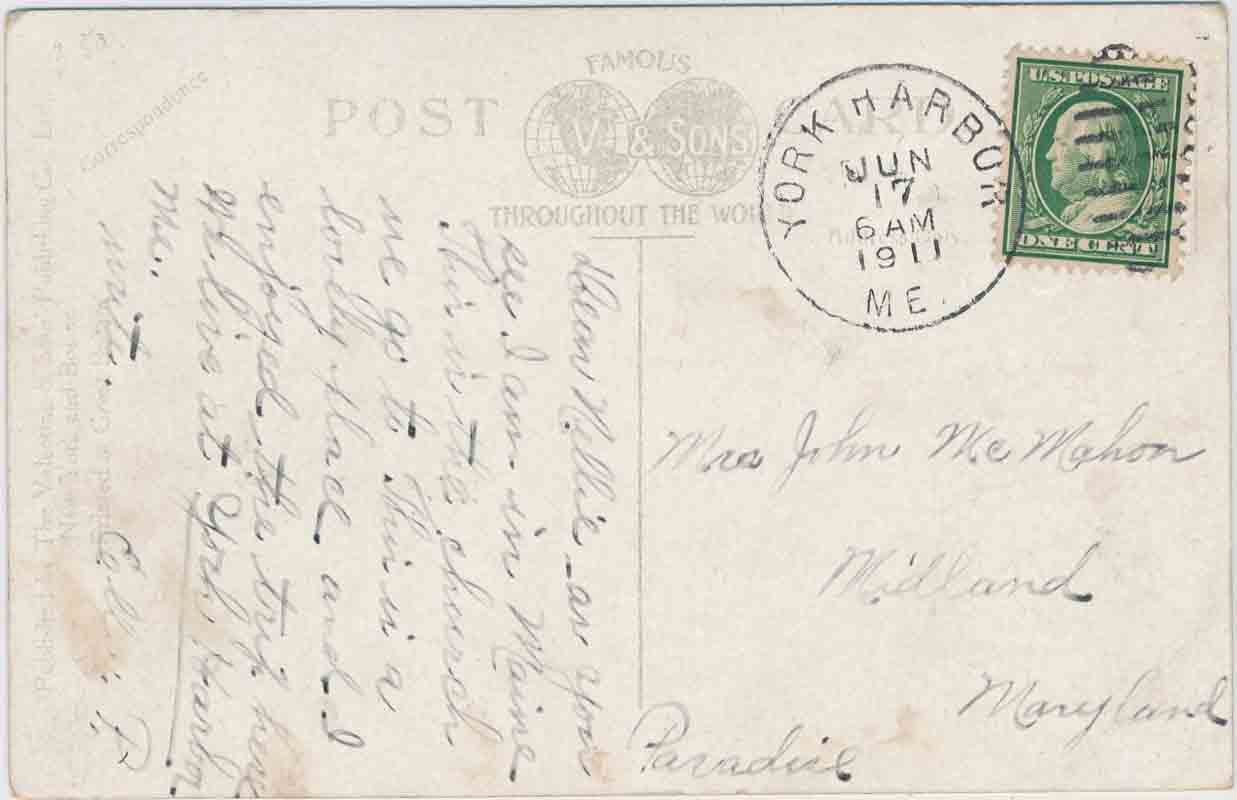 Correspondence
POST CARD
FAMOUS
V & SONS
THROUGHOUT THE WOR
YORK HARBOR
JUN
17
6 AM
1911
ME.
U.S. POSTAGE
ONE CENT
Dear Nellie - as you
see I am in Maine
This is the church
we go to This is a
lovely place and I
enjoyed the trip here
Will be at York Harbor
Me.
write.
P
Mrs John McMahon
Midland
Maryland
Paradise
Published by The Valentine & Sons' Publishing Co.
New York and Boston
Printed in Great